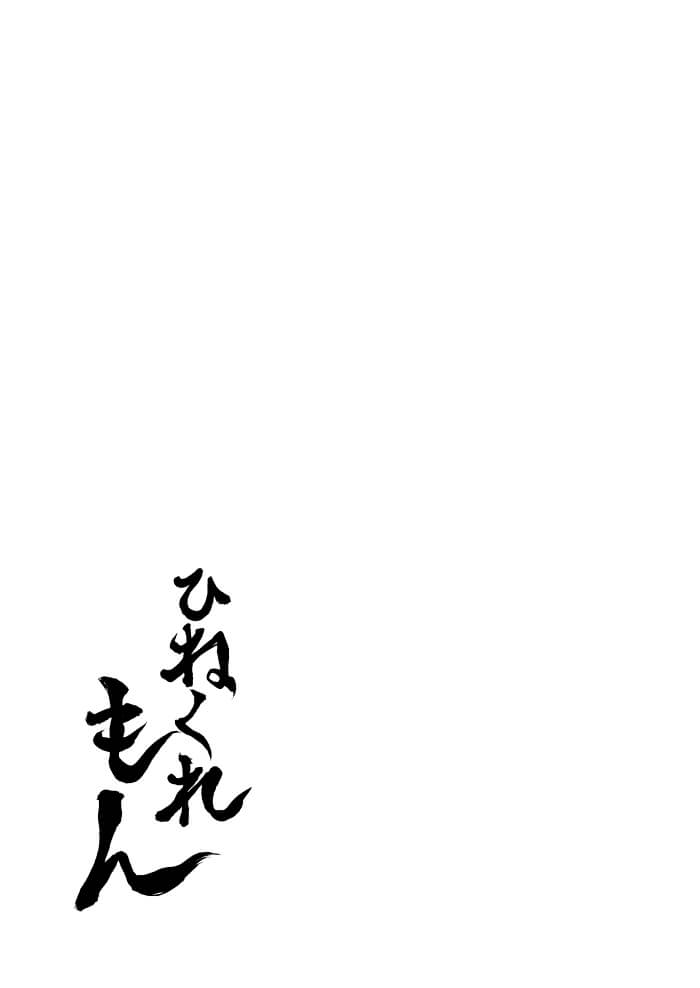 ひねくれ
もん